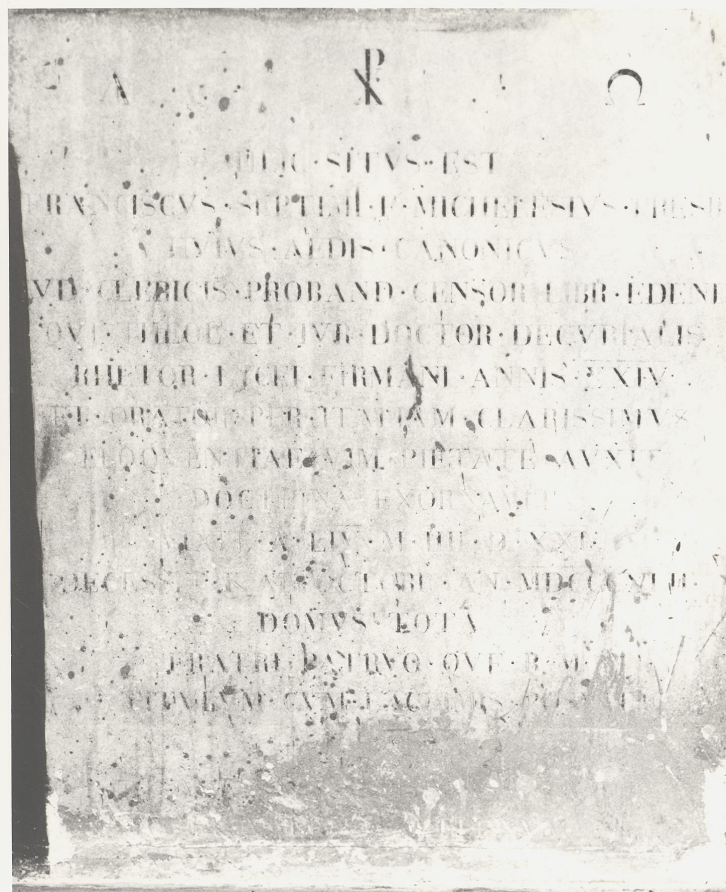 A ☧ Ω
HIC · SITVS · EST
FRANCISCVS · SEPTIMI · F · MICHELESIVS · PRESB
HVIVS · AEDIS · CANONICVS
CLERICIS · PROBAND · CENSOR · LIBR · EDEND
QVE · THEOL · ET · IVR · DOCTOR · DECVRIALIS
RHETOR · LYCEI · FIRMANI · ANNIS · XXIV
ET · ORATOR · PER · ITALIAM · CLARISSIMVS
ELOQVENTIAE · VIM · PIETATE · AVXIT
DOCTRINA · EXORNAVIT
VIXIT · A · LIV · M · III · D · XXI
DECESSIT · KAL · OCTOBR · AN ·
DOMVS · TOTA
FRATRI · PATRVO · QVE · B · M
TITVLVM · CVM · LACRIMIS